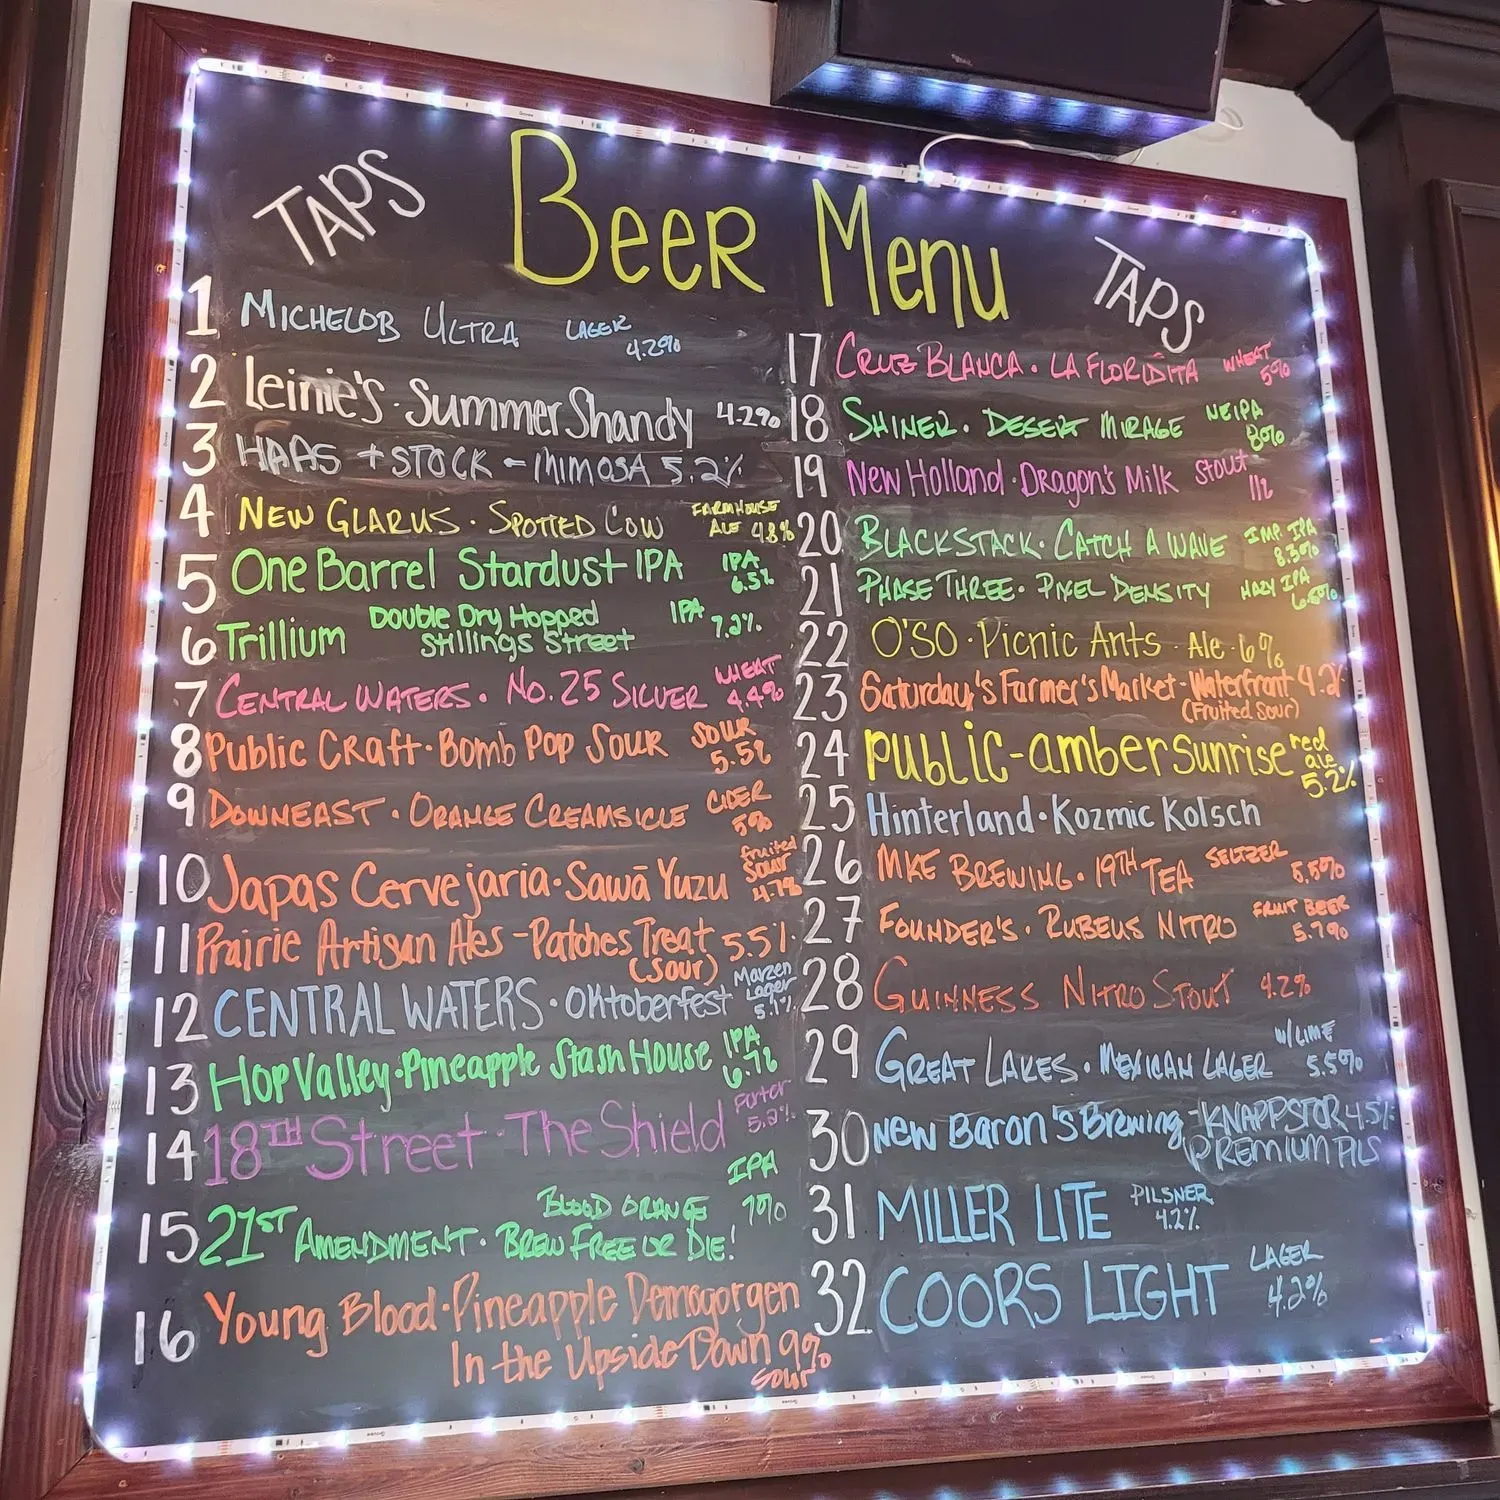 TAPS Beer Menu TAPS
1 MICHELOB ULTRA LAGER 4.2%
2 Leinie's · Summer Shandy 4.2%
3 HAAS + STOCK - MIMOSA 5.2%
4 NEW GLARUS · SPOTTED COW FARMHOUSE ALE 4.8%
5 One Barrel Stardust IPA IPA 6.5%
6 Trillium Double Dry Hopped Stillings Street IPA 7.2%
7 CENTRAL WATERS · No. 25 SILVER WHEAT 4.4%
8 Public Craft · Bomb Pop Sour SOUR 5.5%
9 DOWNEAST · ORANGE CREAMSICLE CIDER 5%
10 Japas Cervejaria · Sawā Yuzu fruited Sour 4.7%
11 Prairie Artisan Ales - Patches Treat (Sour) 5.5%
12 CENTRAL WATERS · Oktoberfest Marzen Lager 5.1%
13 Hop Valley · Pineapple Stash House IPA 6.7%
14 18TH Street · The Shield Porter 5.2%
15 21ST AMENDMENT · BLOOD ORANGE BREW FREE OR DIE! IPA 7%
16 Young Blood · Pineapple Demogorgen
In the Upside Down 9% Sour
17 CRUZ BLANCA · LA FLORIDITA WHEAT 5%
18 SHINER · DESERT MIRAGE NEIPA 8%
19 New Holland · Dragon's Milk Stout 11%
20 BLACKSTACK · CATCH A WAVE IMP. IPA 8.3%
21 PHASE THREE · PIXEL DENSITY HAZY IPA 6.5%
22 O'SO · Picnic Ants · Ale · 6%
23 Saturday's Farmer's Market - Waterfront 4.2%
(Fruited Sour)
24 PUBLIC - amber sunrise red ale 5.2%
25 Hinterland · Kozmic Kolsch
26 MKE BREWING · 19TH TEA SELTZER 5.5%
27 FOUNDER'S · RUBEUS NITRO FRUIT BEER 5.7%
28 GUINNESS NITRO STOUT 4.2%
29 GREAT LAKES · MEXICAN LAGER W/ LIME 5.5%
30 NEW Baron's Brewing - KNAPPSTOR 4.5%
PREMIUM PILS
31 MILLER LITE PILSNER 4.2%
32 COORS LIGHT LAGER 4.2%